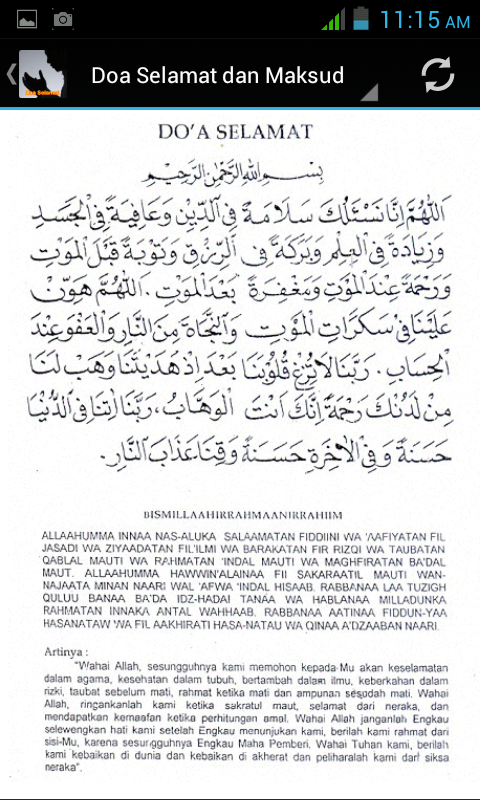 11:15 AM
Doa Selamat dan Maksud
DO'A SELAMAT
بِسْمِ اللهِ الرَّحْمٰنِ الرَّحِيْمِ
اَللّٰهُمَّ اِنَّا نَسْئَلُكَ سَلَامَةً فِى الدِّيْنِ وَعَافِيَةً فِى الْجَسَدِ
وَزِيَادَةً فِى الْعِلْمِ وَبَرَكَةً فِى الرِّزْقِ وَتَوْبَةً قَبْلَ الْمَوْتِ
وَرَحْمَةً عِنْدَ الْمَوْتِ وَمَغْفِرَةً بَعْدَ الْمَوْتِ . اَللّٰهُمَّ هَوِّنْ
عَلَيْنَا فِى سَكَرَاتِ الْمَوْتِ وَالنَّجَاةَ مِنَ النَّارِ وَالْعَفْوَ عِنْدَ
الْحِسَابِ . رَبَّنَا لَا تُزِغْ قُلُوْبَنَا بَعْدَ اِذْ هَدَيْتَنَا وَهَبْ لَنَا
مِنْ لَدُنْكَ رَحْمَةً اِنَّكَ اَنْتَ الْوَهَّابُ ، رَبَّنَا اٰتِنَا فِى الدُّنْيَا
حَسَنَةً وَفِى الْاٰخِرَةِ حَسَنَةً وَقِنَا عَذَابَ النَّارِ .
BISMILLAAHIRRAHMAANIRRAHIIM
ALLAAHUMMA INNAA NAS-ALUKA SALAAMATAN FIDDIINI WA 'AAFIYATAN FIL
JASADI WA ZIYAADATAN FIL'ILMI WA BARAKATAN FIR RIZQI WA TAUBATAN
QABLAL MAUTI WA RAHMATAN 'INDAL MAUTI WA MAGHFIRATAN BA'DAL
MAUT. ALLAAHUMMA HAWWIN'ALAINAA FII SAKARAATIL MAUTI WAN-
NAJAATA MINAN NAARI WAL 'AFWA 'INDAL HISAAB. RABBANAA LAA TUZIGH
QULUU BANAA BA'DA IDZ-HADAI TANAA WA HABLANAA MILLADUNKA
RAHMATAN INNAKA ANTAL WAHHAAB. RABBANAA AATINAA FIDDUN-YAA
HASANATAW WA FIL AAKHIRATI HASA-NATAU WA QINAA A'DZAABAN NAARI.
Artinya :
"Wahai Allah, sesungguhnya kami memohon kepada-Mu akan keselamatan
dalam agama, kesehatan dalam tubuh, bertambah dalam ilmu, keberkahan dalam
rizki, taubat sebelum mati, rahmat ketika mati dan ampunan sesudah mati. Wahai
Allah, ringankanlah kami ketika sakratul maut, selamat dari neraka, dan
mendapatkan kemaafan ketika perhitungan amal. Wahai Allah janganlah Engkau
selewengkan hati kami setelah Engkau menunjukan kami, berilah kami rahmat dari
sisi-Mu, karena sesungguhnya Engkau Maha Pemberi. Wahai Tuhan kami, berilah
kami kebaikan di dunia dan kebaikan di akherat dan peliharalah kami dari siksa
neraka".